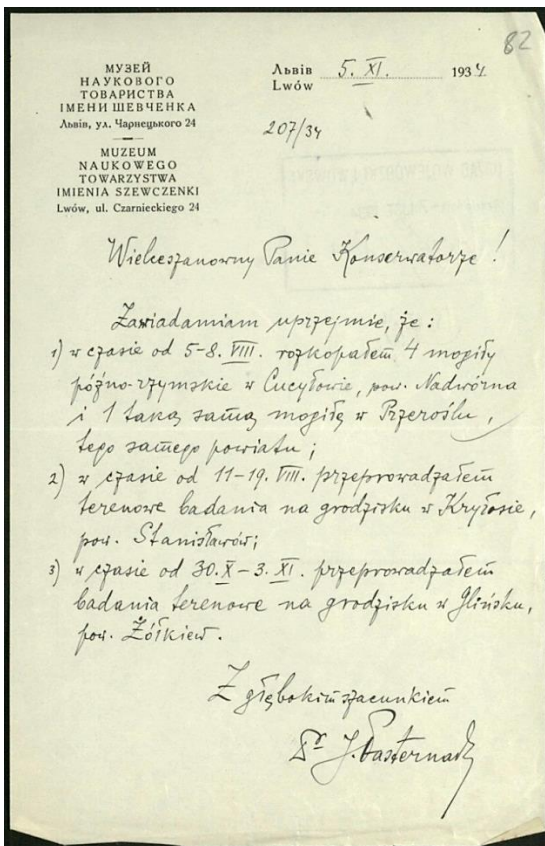 82
МУЗЕЙ
НАУКОВОГО
ТОВАРИСТВА
ІМЕНИ ШЕВЧЕНКА
Львів, ул. Чарнецького 24
MUZEUM
NAUKOWEGO
TOWARZYSTWA
IMIENIA SZEWCZENKI
Lwów, ul. Czarnieckiego 24
Львів
Lwów 5. XI. 1934.
207/34
Wielceszanowny Panie Konserwatorze!
Zawiadamiam uprzejmie, że:
1) w czasie od 5-8. VIII. rozkopałem 4 mogiły
późno-rzymskie w Cucyłowie, pow. Nadwórna
i 1 taką samą mogiłę w Przeroślu,
tego samego powiatu;
2) w czasie od 11-19. VIII. przeprowadzałem
terenowe badania na grodzisku w Kryłosie,
pow. Stanisławów;
3) w czasie od 30. X - 3. XI. przeprowadzałem
badania terenowe na grodzisku w Glińsku,
pow. Żółkiew.
Z głębokim szacunkiem
Dr J. Pasternak